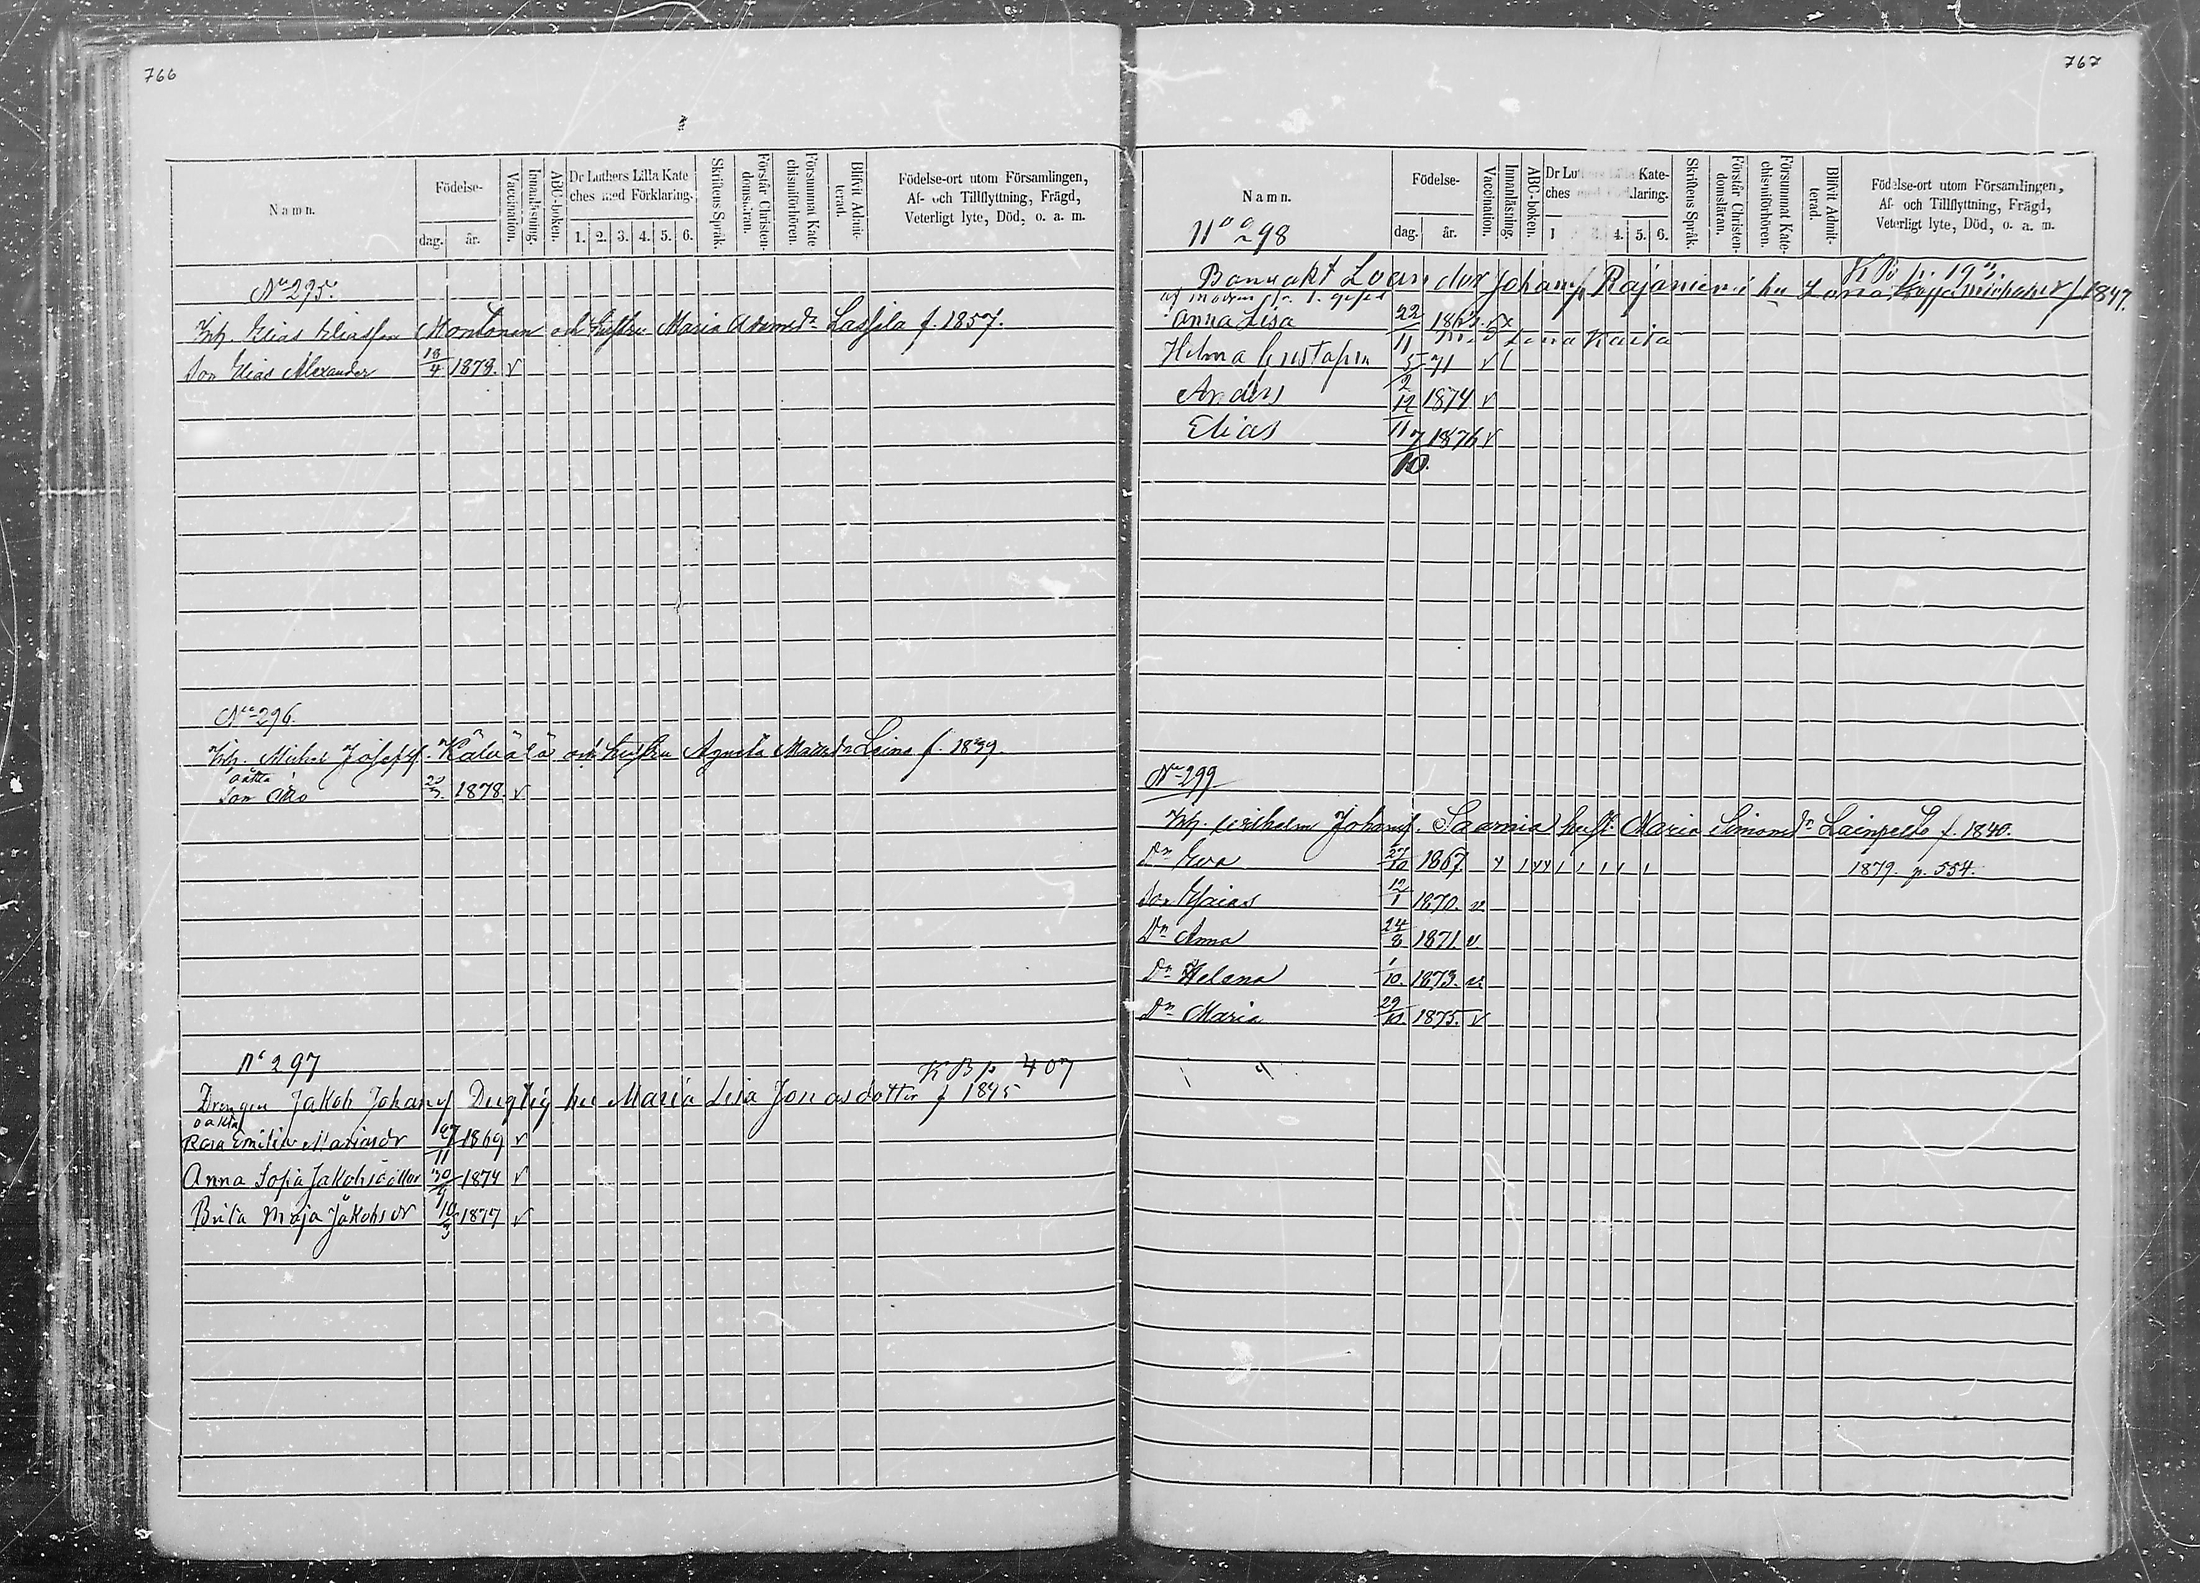 766
Namn.
Födelse-
dag.
år.
Vaccination.
Innanläsning.
ABC-boken.
Dr Luthers Lilla Kate
ches med Förklaring.
1. 2. 3. 4. 5. 6.
Skriftens Språk.
Förstår Christen-
domsläran.
Försummat Kate
chismiförhören.
Blifvit Admit-
terad.
Födelse-ort utom Församlingen,
Af- och Tillflyttning, Frägd,
Veterligt lyte, Död, o. a. m.
No 295.
Elias Eliasson Montonen och hustru Maria Adamsdr Lassila f. 1857.
Son Elias Alexander 18/4 1878. v
No 296.
Michel Josefs. Kälvälä och hustru Agneta Mattsdr Leino f. 1839.
oäkta
Son Otto 1878. v
No 297
KB p 407
Drengen Jakob Johans Dugtig hu Maria Lisa Jonasdotter f 1845
oäkta
Rosa Emilia Mariasdr 27/11 1869 v
Anna Sofia Jakobsdotter 30/9 1874 v
Brita Maja Jakobsdr 10/3 1877 v
767
Namn.
Födelse-
dag.
år.
Vaccination.
Innanläsning.
ABC-boken.
Dr Luthers Lilla Kate-
ches med Förklaring.
1 3. 4. 5. 6.
Skriftens Språk.
Förstår Christen-
domsläran.
Försummat Kate-
chismiförhören.
Blifvit Admit-
terad.
Födelse-ort utom Församlingen,
Af- och Tillflyttning, Frägd,
Veterligt lyte, Död, o. a. m.
No 298
Johans Rajaniemi hu Lena Kajsa f 1847.
Anna Lisa 22/11 1863.
med Lena Kaisa
Hilma Gustafva 5/2 71 v
Anders 12/11 1874 v
Elias 7/10. 1876 v
No 299
Wilhelm Johans. Saarnia hust. Maria Simonsdr Lainpelto f. 1840.
Dr Eva 27/10 1867 1879. p. 554.
Son Esaias 12/1 1870. v
Dr Anna 24/8 1871. v
Dr Helena 1/10. 1873. v.
Dr Maria 29/10. 1875. v